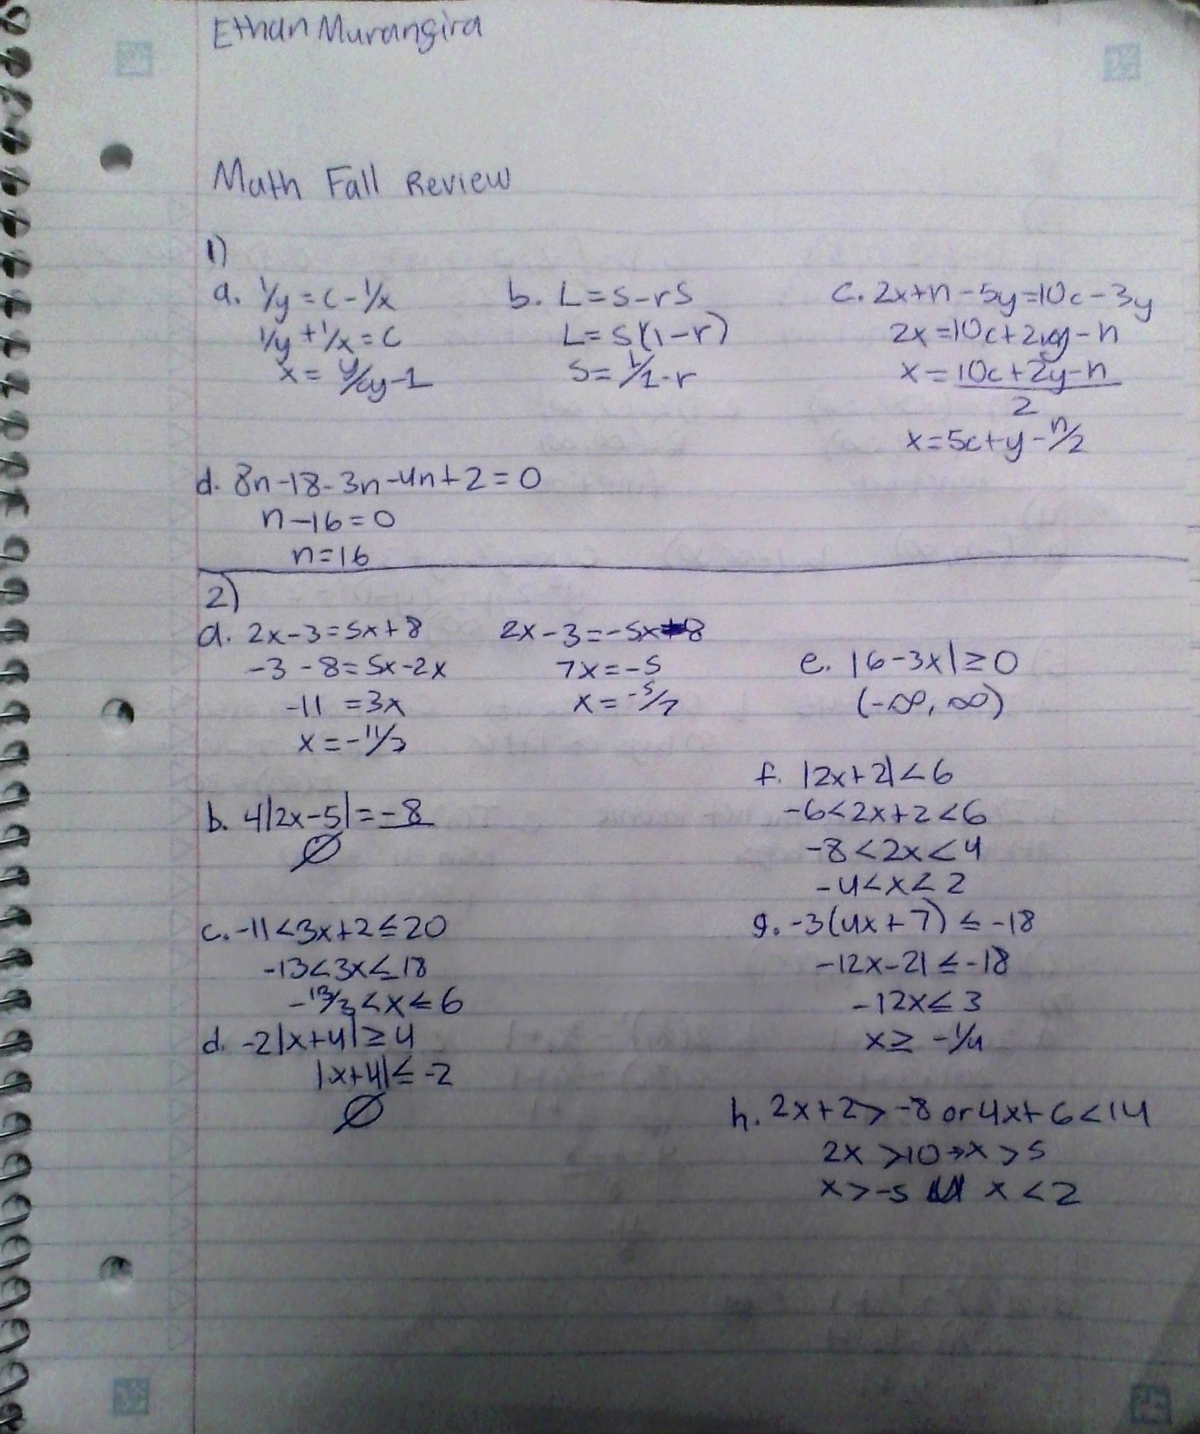 Ethan Murangira
Math Fall Review
1)
a. 1/y = c - 1/x
1/y + 1/x = c
x = y/cy-1
b. L = s - rs
L = s(1-r)
s = L/1-r
c. 2x+n-5y=10c-3y
2x=10c+2y-n
x=10c+2y-n
2
x=5c+y-n/2
d. 8n-18-3n-4n+2=0
n-16=0
n=16
2)
a. 2x-3=5x+8
-3-8=5x-2x
-11=3x
x=-11/3
2x-3=-5x-8
7x=-5
x=-5/7
b. 4|2x-5|=-8
∅
c. -11<3x+2≤20
-13<3x≤18
-13/3<x≤6
d. -2|x+4|≥4
|x+4|≤-2
∅
e. |6-3x|≥0
(-∞,∞)
f. |2x+2|<6
-6<2x+2<6
-8<2x<4
-4<x<2
g. -3(4x+7)≤-18
-12x-21≤-18
-12x≤3
x≥-1/4
h. 2x+2>-8 or 4x+6<14
2x>10→x>5
x>-5 x<2